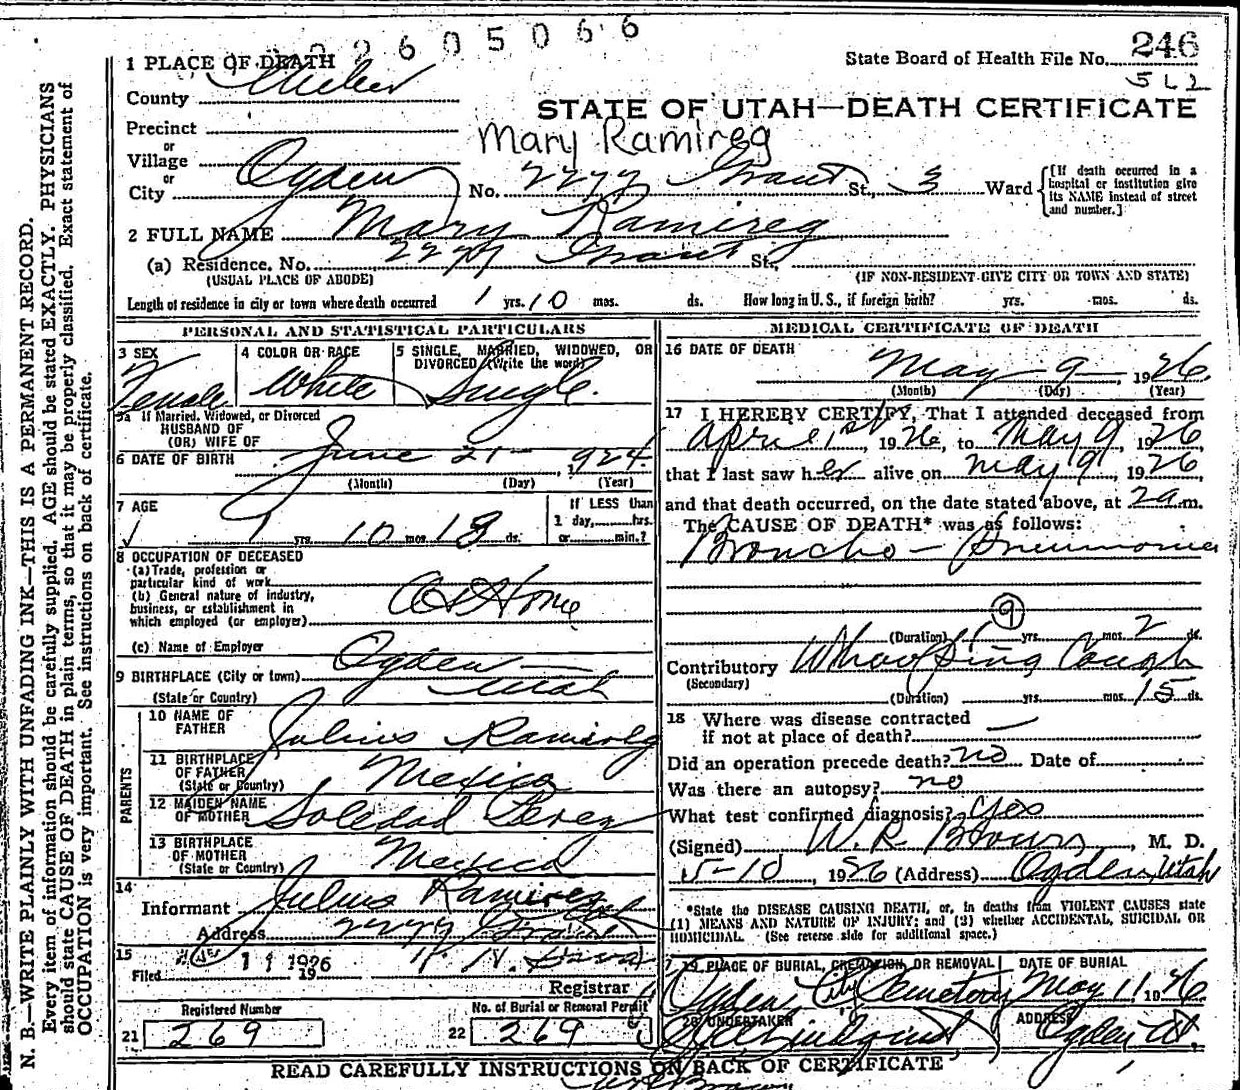 2605066
State Board of Health File No. 246
512
1 PLACE OF DEATH
County Weber
STATE OF UTAH—DEATH CERTIFICATE
Precinct
Mary Ramireg
or
Village
or
City Ogden No. Grant St., 3 Ward
[If death occurred in a hospital or institution give its NAME instead of street and number.]
2 FULL NAME Mary Ramireg
(a) Residence. No. Grant St.,
(USUAL PLACE OF ABODE) (IF NON-RESIDENT GIVE CITY OR TOWN AND STATE)
Length of residence in city or town where death occurred 1 yrs. 10 mos. ds. How long in U. S., if foreign birth? yrs. mos. ds.
PERSONAL AND STATISTICAL PARTICULARS
3 SEX Female
4 COLOR OR RACE White
5 SINGLE, MARRIED, WIDOWED, OR DIVORCED (Write the word) Single.
5a If Married, Widowed, or Divorced
HUSBAND OF
(OR) WIFE OF
6 DATE OF BIRTH June 21 - 1924
(Month) (Day) (Year)
7 AGE 1 yrs. 10 mos. 18 ds.
If LESS than
1 day, hrs.
or min.?
8 OCCUPATION OF DECEASED
(a) Trade, profession or
particular kind of work
(b) General nature of industry,
business, or establishment in
which employed (or employer) At Home
(c) Name of Employer
9 BIRTHPLACE (City or town) Ogden
(State or Country) Utah
PARENTS
10 NAME OF FATHER Julius Ramireg
11 BIRTHPLACE OF FATHER (State or Country) Mexico
12 MAIDEN NAME OF MOTHER Soledad Perez
13 BIRTHPLACE OF MOTHER (State or Country) Mexico
14 Informant Julius Ramirez
Address Grant
15 Filed 11 1926 19
Registrar
Registered Number
21 269
No. of Burial or Removal Permit
22 269
MEDICAL CERTIFICATE OF DEATH
16 DATE OF DEATH May 9, 1926
(Month) (Day) (Year)
17 I HEREBY CERTIFY, That I attended deceased from
April 1st 1926, to May 9, 1926
that I last saw her alive on May 9, 1926,
and that death occurred, on the date stated above, at 2 a m.
The CAUSE OF DEATH* was as follows:
Broncho - Pneumonia
9
(Duration) yrs. mos. 2 ds.
Contributory Whooping Cough
(Secondary)
(Duration) yrs. mos. 15 ds.
18 Where was disease contracted
if not at place of death? —
Did an operation precede death? no Date of
Was there an autopsy? no
What test confirmed diagnosis? yes
(Signed) W. R. Brown, M. D.
5-10, 1926 (Address) Ogden, Utah
*State the DISEASE CAUSING DEATH, or, in deaths from VIOLENT CAUSES state
(1) MEANS AND NATURE OF INJURY; and (2) whether ACCIDENTAL, SUICIDAL OR
HOMICIDAL. (See reverse side for additional space.)
19 PLACE OF BURIAL, CREMATION, OR REMOVAL
Ogden City Cemetery
DATE OF BURIAL
May 11 1926
20 UNDERTAKER
Lindquist
ADDRESS
Ogden Ut.
READ CAREFULLY INSTRUCTIONS ON BACK OF CERTIFICATE
N. B.—WRITE PLAINLY WITH UNFADING INK—THIS IS A PERMANENT RECORD.
Every item of information should be carefully supplied. AGE should be stated EXACTLY. PHYSICIANS
should state CAUSE OF DEATH in plain terms, so that it may be properly classified. Exact statement of
OCCUPATION is very important. See instructions on back of certificate.